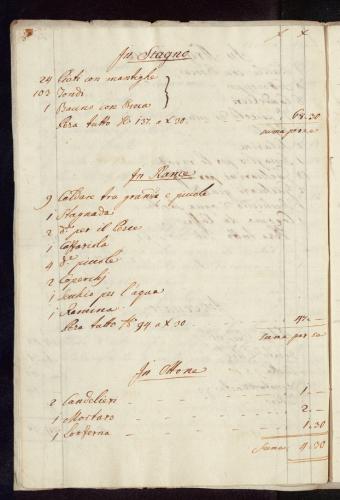 In Stagno
24 Piati con manteghe
103 Tondi
1 Bacino con Broca
Pesa tutto 137. a x 30 68.30
suma per se
In Rame
9 Caldare tra grande e picole
1 Stagnada
2 d.e per il Pesce
1 Cassarola
4 d.e picole
2 Coperchj
1 Sechio per l'aqua
1 Ramina
Pesa tutto 94 a x 30 47. –
suma per se
In Ottone
2 Candelieri – – – 1. –
1 Mortaro – – – 2. –
1 Lucerna – – – 1.30
Suma 4.30